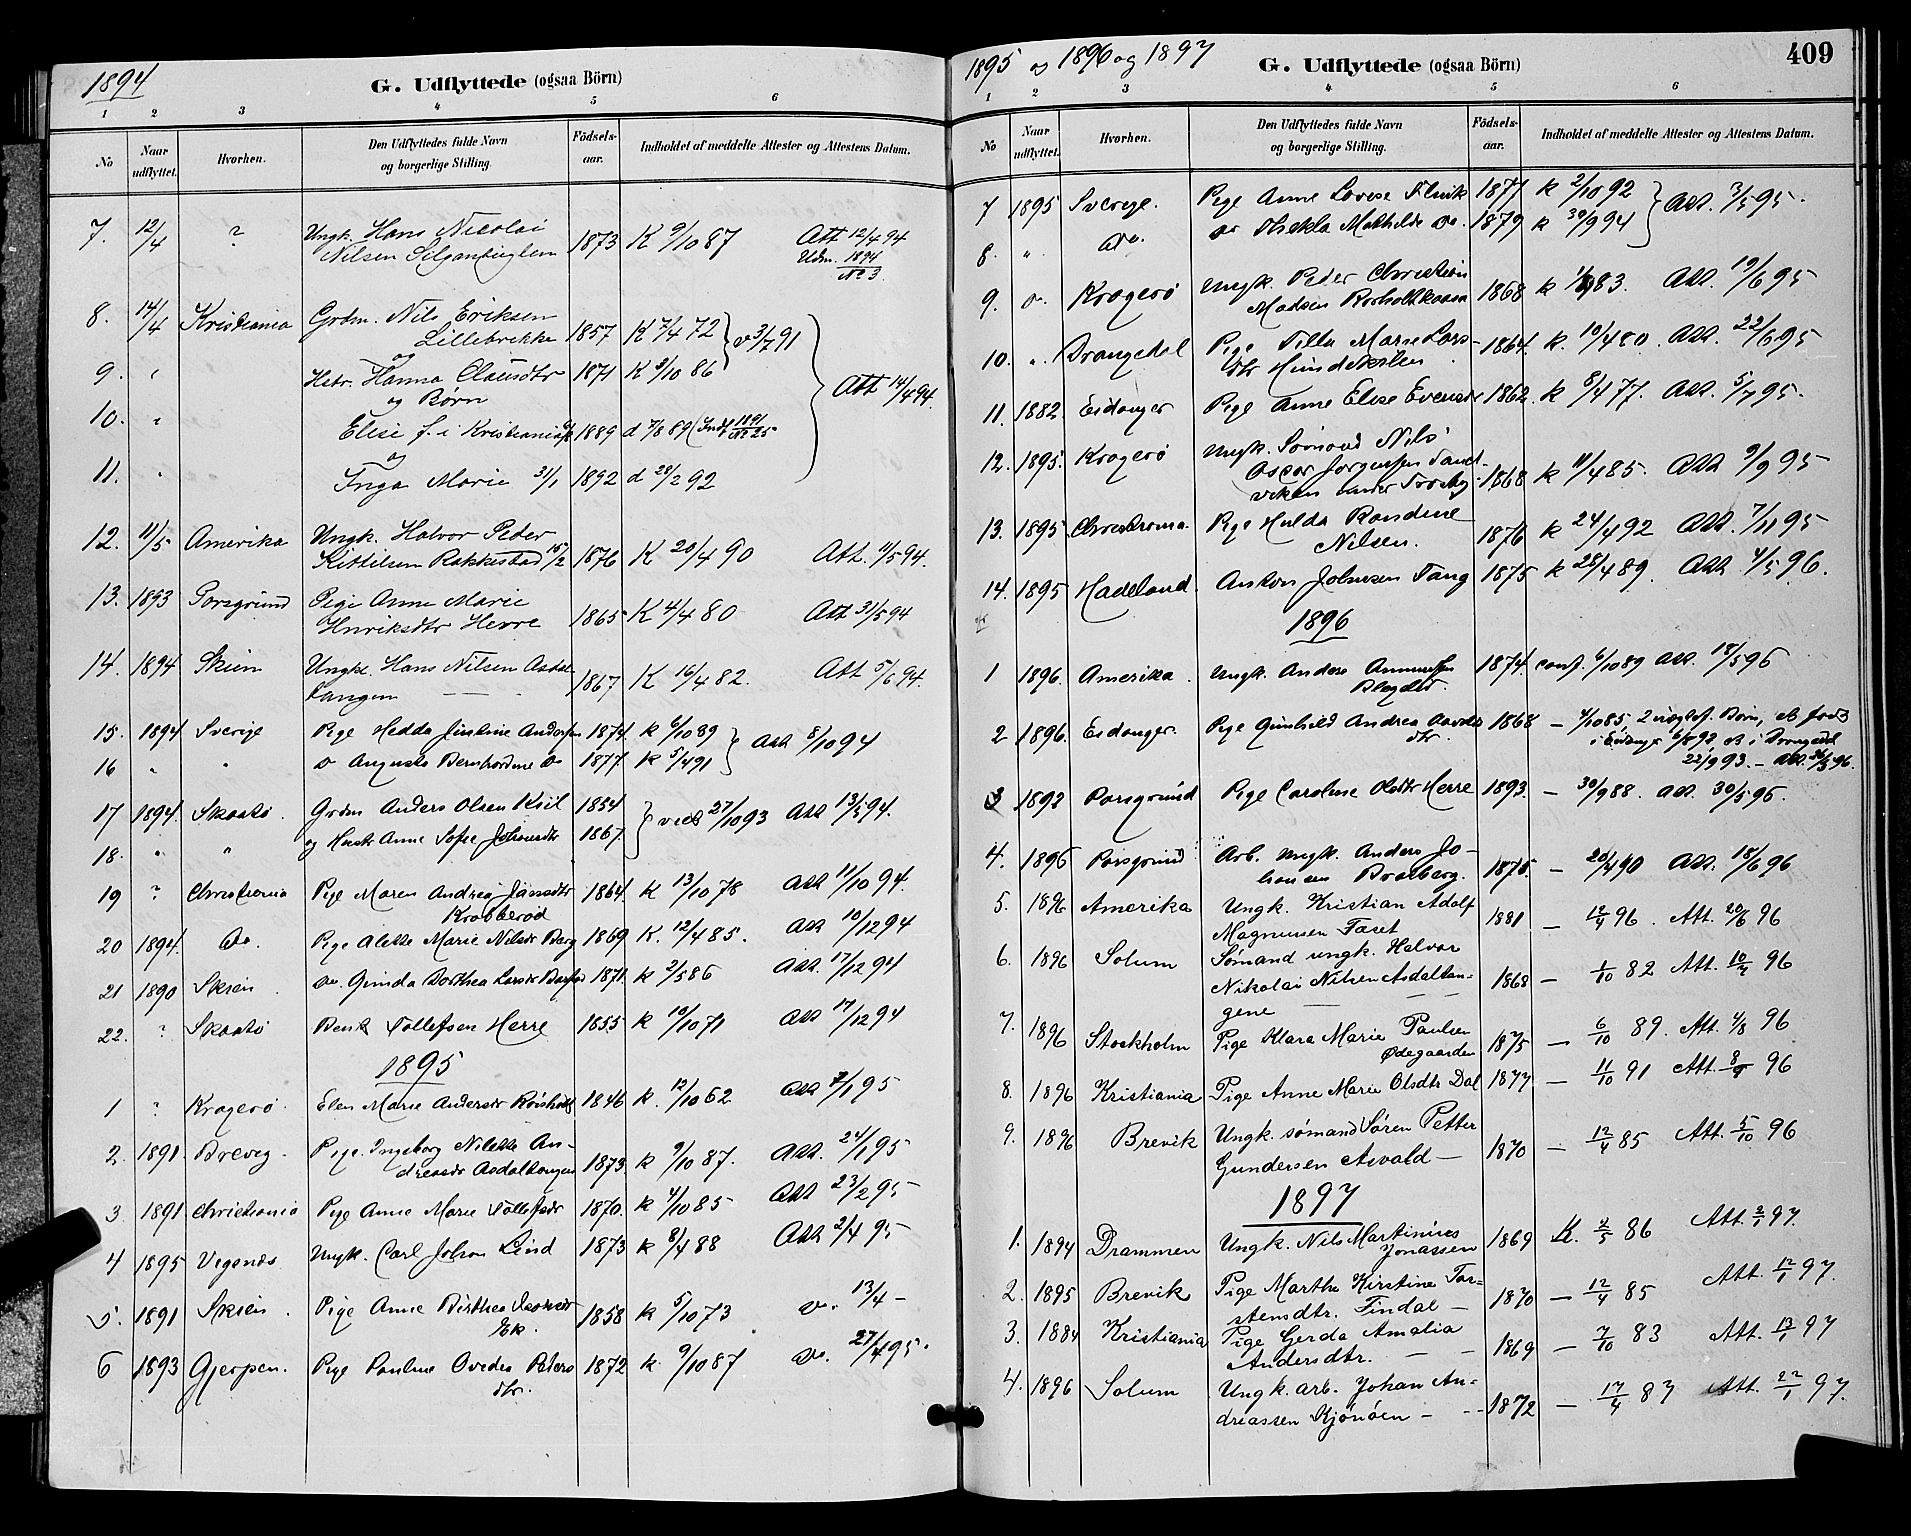 1894
G. Udflyttede (ogsaa Börn)
1 2 3 4 5 6
No
Naar udflyttet.
Hvorhen.
Den Udflyttedes fulde Navn og borgerlige Stilling.
Födsels-aar.
Indholdet af meddelte Attester og Attestens Datum.
7. 12/4 ? Ungk. Hans Nicolai
Nilsen 1873 K 9/10 87 Att 12/4 94
Udm. 1894
No 3.
8. 14/4 Kristiania Grdm. Nils Eriksen
Lillebrekke 1857 K 7/4 72 v 3/7 91
og
9. " Hstr. Hanna Olausdtr 1871 K 3/10 86 Att 14/4 94.
og Børn
10. " Elise f. i Kristiania 1889 d 7/8 89 (Indf. 1891
No 25
og
11. " Inga Marie 31/1 1892 d 28/2 92
12. 11/5 Amerika Ungk. Halvor Peder
Kittilsen Rakkestad 15/2 1876 K 20/4 90 Att. 11/5 94.
13. 1893 Porsgrund Pige Anne Marie
Henriksdtr Herre 1865 K 4/4 80 Att 31/5 94
14. 1894 Skien Ungk. Hans Nilsen Asdal
tangen 1867 K 16/4 82. Att 5/6 94.
15. 1894 Sverige Pige Hedda Justine Andersen 1874. k 6/10 89
16 " " do Augusta Bernhardine do 1877. k 5/4 91 Att 8/10 94
17 1894. Skaatø. Grdm Anders Olsen Kiil 1854
18. " " og Hustr Anne Sofie Johansdtr 1867. vied 27/10 93 Att 13/ 94.
19 ? Christiania Pige Maren Andrea Jansdtr 1864. k 13/10 78 Att 11/10 94.
Krabberød
20 1894. do. Pige Alette Marie Nilsdr Berg 1869 K. 12/4 85. Att 10/12 94
21 1890 Skien do. Gunda Dorthea Larsdr 1871. k 2/5 86 Att. 17/12 94
22. ? Skaatø Bent Tollefsen Herre 1855 k 10/10 71 Att 17/12 94
1895
1 ? Kragerø. Elen Marie Andersdr Rørholt 1846 k. 12/10 62 Att 7/1 95
2. 1891. Brevig. Pige. Ingeborg Nilette An-
dreasdr Asdaltangen 1873. k 9/10 87. Att. 24/1 95
3. 1891 Christiania Pige Anne Marie Tollefsdr 1870. k 4/10 85 Att 23/2 95
4 1895 Vegends Ungk. Carl Johan Lind 1873 k 8/4 88 Att 2/4 95
5. 1891 Skien. Pige Anne Birthea Isaksdr
Ek. 1858 k 5/10 73 do. 13/4 –
6 1893 Gjerpen. Pige Pauline Ovedia Peters
dtr. 1872 k. 9/10 87 do. 27/4 95.
1895 og 1896 og 1897
G. Udflyttede (ogsaa Börn)
409
1 2 3 4 5 6
No
Naar udflyttet.
Hvorhen.
Den Udflyttedes fulde Navn og borgerlige Stilling.
Födsels-aar.
Indholdet af meddelte Attester og Attestens Datum.
7 1895 Sverige. Pige Anne Lovise 1877 k 2/10 92
8. " do. do Thekla Mathilde do. 1879 k 30/9 94 Att. 3/5 95.
9. " Kragerø Ungk. Peder Christian
Madsen Rørholtkaasa 1868 k 83. Att. 19/6 95
10. " Drangedal Pige Tilla Marie Lars-
dtr 1864. k. 10/4 80. Att. 22/6 95
11. 1882 Eidanger Pige Anne Elise Evensdr 1862. k 8/4 77. Att. 5/7 95.
12. 1895. Kragerø Ungk. Sømand Nils
Oscar Jørgensen Sand-
viken under 1868 k 11/4 85. Att 9/9 95
13. 1895 Christiania. Pige Hulda Randine
Nilsen. 1876 k 24/4 92 Att. 7/11 95
14. 1895 Hadeland. Anton Johnsen Tang 1875 k 28/4 89. Att 4/5 96.
1896
1 1896. Amerika. Ungk. Anders 1874. conf. 6/10 89 Att. 18/5 96
2 1896. Eidanger. Pige Gunhild Andrea
dtr. 1868 – 4/10 85, 2 uægtef. Børn, et født
i Eidanger 6/8 92 et i Drangedal
22/9 93. – Att. 96.
3 1892 Porsgrund Pige Caroline Olsdtr Herre 1893. – 30/9 88. Att 30/5 96.
4. 1896 Porsgrund Arb. Ungk. Anders Jo-
hansen Bratberg. 1875. – 20/4 90 Att. 18/6 96
5. 1896 Amerika Ungk. Kristian Adolf
Magnussen Faret 1881 – 12/4 96. Att. 20/6 96
6. 1896 Solum Sømand ungk. Halvor
Nikolai Nilsen Asdaltan-
gene 1868 – 1/10 82 Att. 10/7 96
7. 1896 Stockholm Pige Klara Marie Paulsen
Ødegaarden 1875 – 6/10 89. Att. 4/8 96
8. 1896 Kristiania Pige Anne Marie Olsdtr Dal 1877 – 11/10 91 Att. 8/9 96
9. 1896 Brevik Ungk. sømand Søren Petter
Gundersen ASvald – 1870 – 12/4 85 Att. 5/10 96
1897
1. 1894 Drammen Ungk. Nils Martinius
Jonassen 1869 K. 2/5 86 Att. 2/1 97.
2. 1895 Brevik Pige Marthe Kirstine Tor=
stensdtr. Findal – 1870 – 12/4 85 Att. 12/1 97.
3. 1884 Kristiania Pige Gerda Amalia
Andersdtr. – – 1869 – 7/10 83 Att. 13/1 97
4. 1896 Solum Ungk. arb. Johan An=
dreassen Kjønøen – 1872 – 17/4 87 Att. 22/1 97.